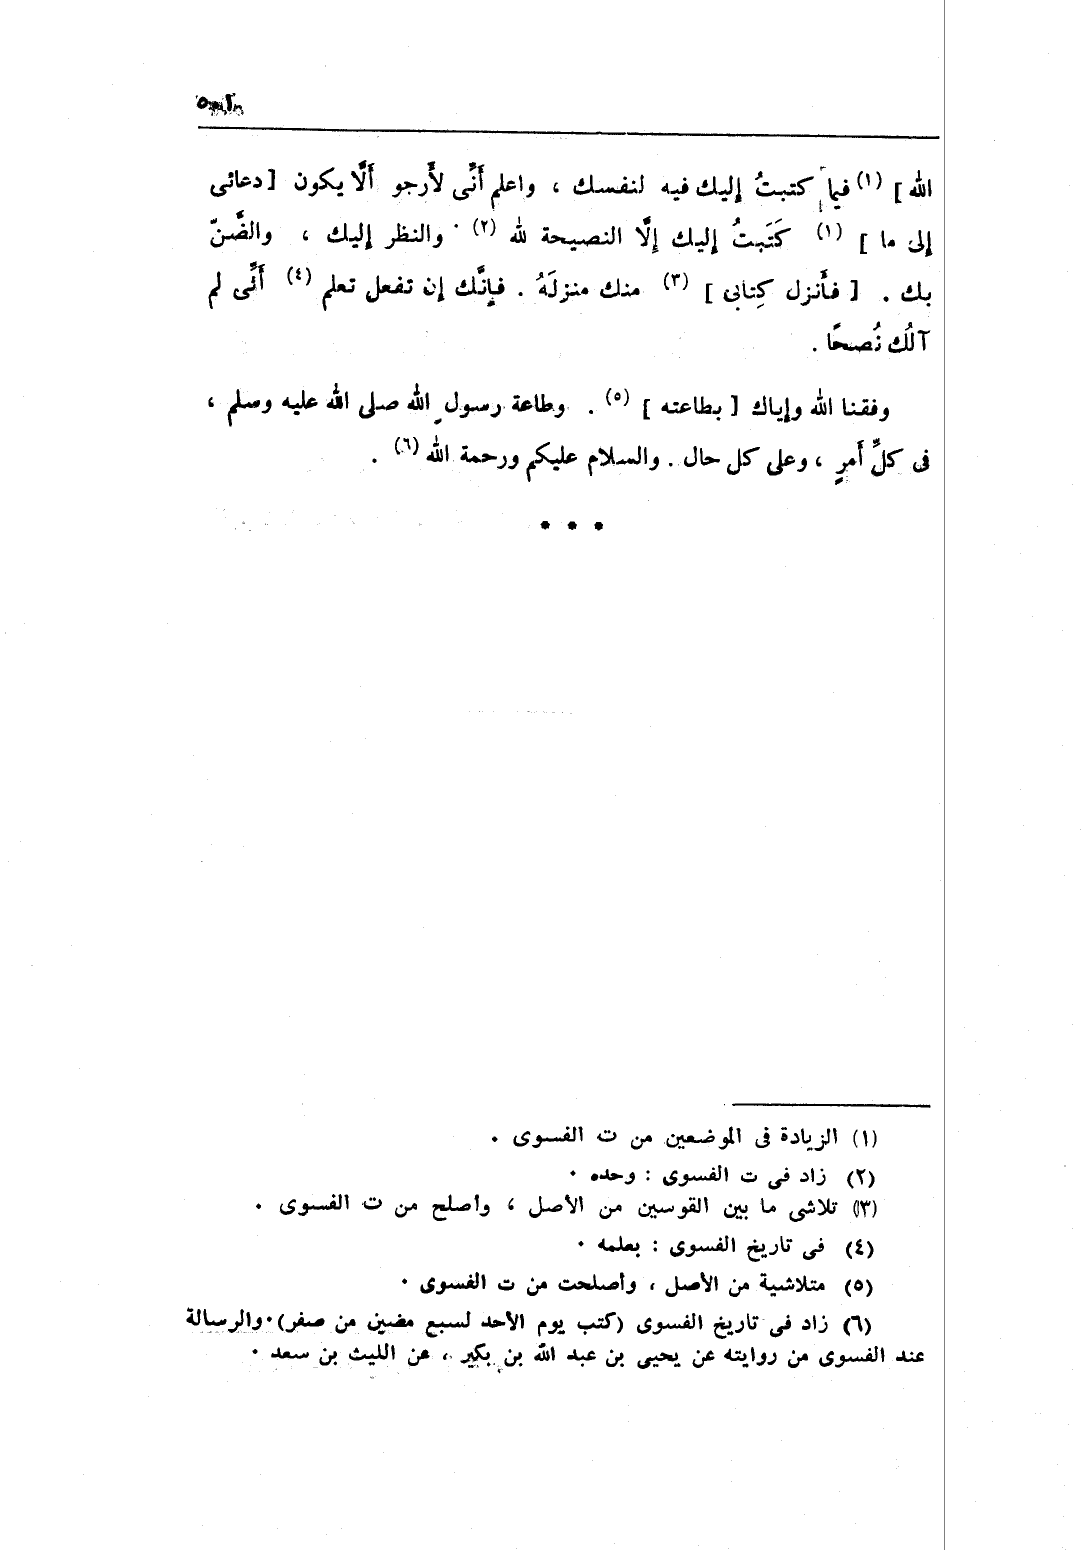 الله ] (١) فيما كتبتُ إليك فيه لنفسك ، واعلم أَنِّى لأَرجو أَلَّا يكون [ دعائى
إلى ما ] (١) كَتَبتُ إليك إلَّا النصيحة لله (٢) . والنظر إليك ، والضَّنّ
بك . [ فأَنزل كِتابى ] (٣) منك منزلَهُ . فإنَّك إن تفعل تعلم (٤) أَنِّى لم
آلُك نُصحًا .
وفقنا الله وإياك [ بطاعته ] (٥) . وطاعة رسولِ الله صلى الله عليه وسلم ،
فى كلِّ أَمرٍ ، وعلى كل حال . والسلام عليكم ورحمة الله (٦) .
* * *
(١) الزيادة فى الموضعين من ت الفسوى .
(٢) زاد فى ت الفسوى : وحده .
(٣) تلاشى ما بين القوسين من الأصل ، وأصلح من ت الفسوى .
(٤) فى تاريخ الفسوى : بعلمه .
(٥) متلاشية من الأصل ، وأصلحت من ت الفسوى .
(٦) زاد فى تاريخ الفسوى (كتب يوم الأحد لسبع مضين من صفر) . والرسالة
عند الفسوى من روايته عن يحيى بن عبد الله بن بكير ، عن الليث بن سعد .